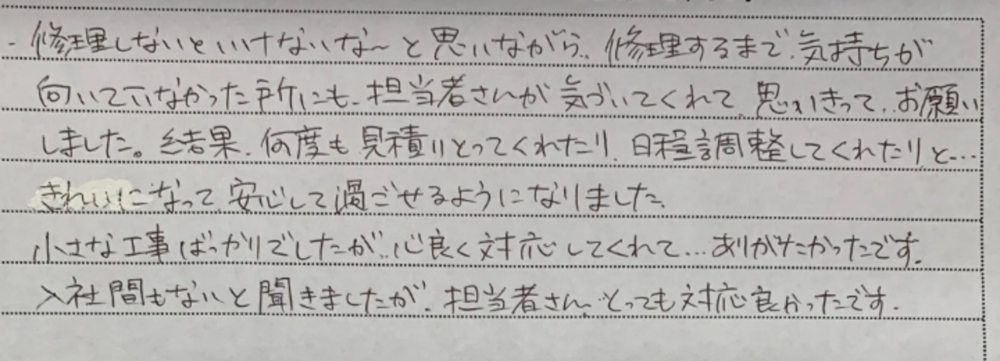 ・修理しないといけないな〜と思いながら、修理するまで、気持ちが
向いていなかった所にも、担当者さんが気づいてくれて、思いきって、お願い
しました。結果、何度も見積りとってくれたり、日程調整してくれたりと…
きれいになって、安心して過ごせるようになりました。
小さな工事ばっかりでしたが、心良く対応してくれて…ありがたかったです。
入社間もないと聞きましたが、担当者さん、とっても対応良かったです。